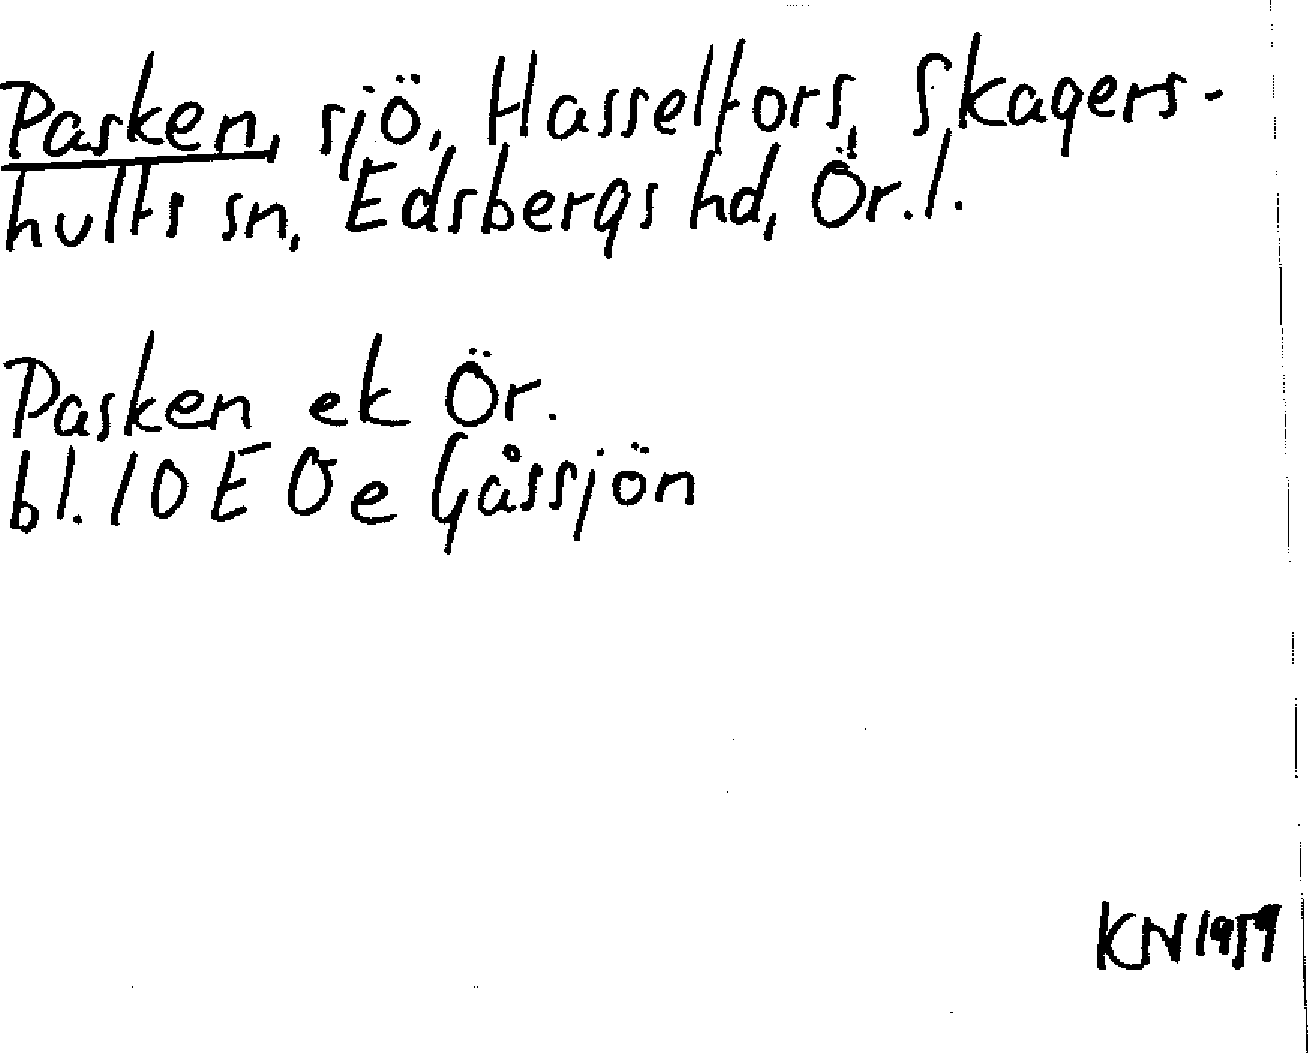 Pasken, sjö, Hasselfors, Skagers-
hults sn, Edsbergs hd, Ör. l.
Pasken ek Ör.
bl. 10 E 0e Gåssjön
KN 1959